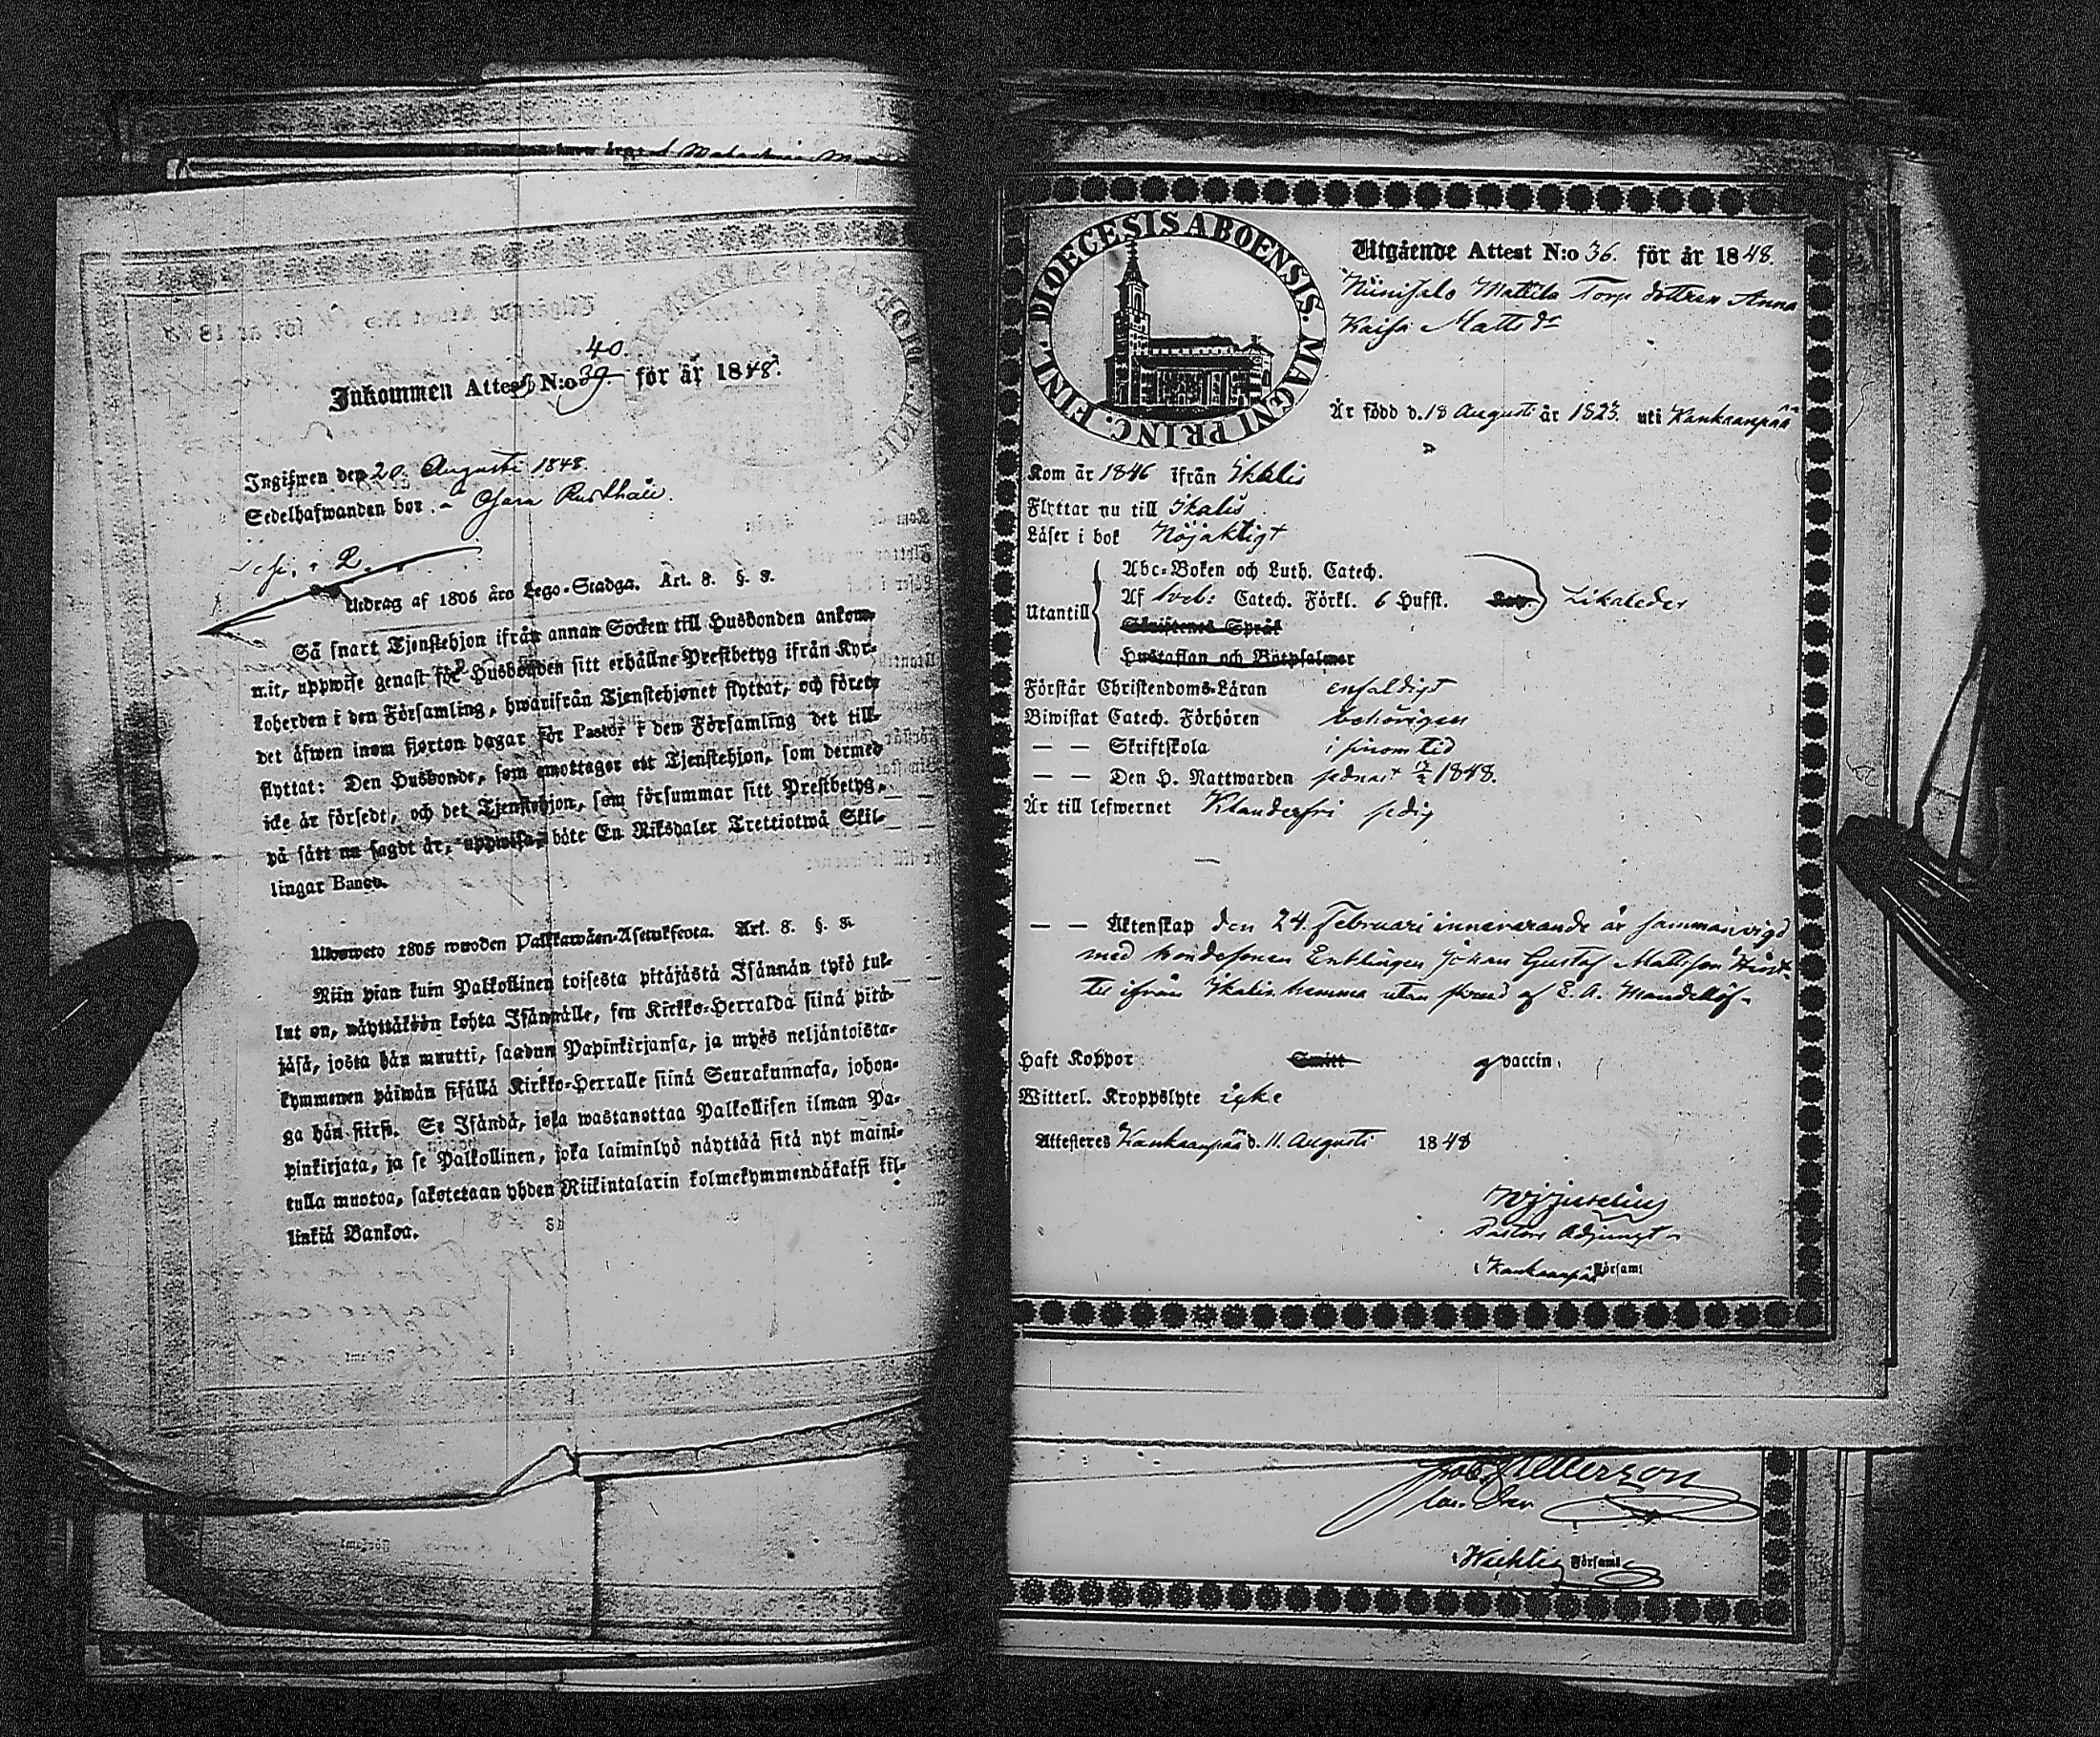 Inkommen Attest N:o 39. 40. för år 1848.
Ingifwen den 20. Augusti 1848.
Sedelhafwanden bor
Utdrag af 1805 års Lego-Stadga. Art. 8. §. 8.
Så snart Tjenstehjon ifrån annan Socken till Husbonden ankom-
mit, uppwise genast för Husbonden sitt erhållne Prestbetyg ifrån Kyr-
koherden i den Församling, hwarifrån Tjenstehjonet flyttat, och förete
det äfwen inom fjorton dagar för Pastor i den Församling det till-
flyttat: Den Husbonde, som emottager ett Tjenstehjon, som dermed
icke är försedt, och det Tjenstehjon, som försummar sitt Prestbetyg,
på sätt nu sagdt är, uppwisa, böte En Riksdaler Trettiotwå Skil-
lingar Banco.
Ulosweto 1805 wuoden Palkkawäen-Asetuksesta. Art. 8. §. 8.
Niin pian kuin Palkollinen toisesta pitäjästä Isännän tykö tul-
lut on, näyttäköön kohta Isännälle, sen Kirkko-Herralda siinä pitä-
jäsä, josta hän muutti, saadun Papinkirjansa, ja myös neljäntoista-
kymmenen päiwän sisällä Kirkko-Herralle siinä Seurakunnasa, johon-
ga hän siirsi. Se Isändä, joka wastanottaa Palkollisen ilman Pa-
pinkirjata, ja se Palkollinen, joka laiminlyö näyttää sitä nyt maini-
tulla muotoa, sakotetaan yhden Riikintalarin kolmekymmendäkaksi kil-
linkiä Bankoa.
DIOECESIS ABOENSIS. MAGNI PRINC. FINL.
Utgående Attest N:o 36. för år 1848.
Niinisalo Mattila Torp dottren Anna
Kaisa Matts dr
Är född d. 18 Augusti år 1823. uti Kankaanpää
Kom år 1846 ifrån Ikalis
Flyttar nu till Ikalis
Läser i bok Nöjaktigt
Utantill
Abc-Boken och Luth. Catech.
Af Sveb: Catech. Förkl. 6 Hufst.
Likaledes
Skriftenes Språk
Hustaflan och Botpsalmer
Förstår Christendoms-Läran enfaldigt
Biwistat Catech. Förhören behörigen
— — Skriftskola i sinom tid
— — Den H. Nattwarden sednast 1848.
Är till lefwernet Klanderfri sedig
— — Äktenskap den 24. Februari innevarande år sammanvigd
med bondesonen Enklingen Johan Gustaf Mattsson
ifrån Ikalis hemma utan
Haft Koppor Smitt vaccin.
Witterl. Kroppslyte icke
Attesteres Kankaanpää d. 11. Augusti 1848
Pastors Adjungt
i Kankaanpää Församl
i Församl